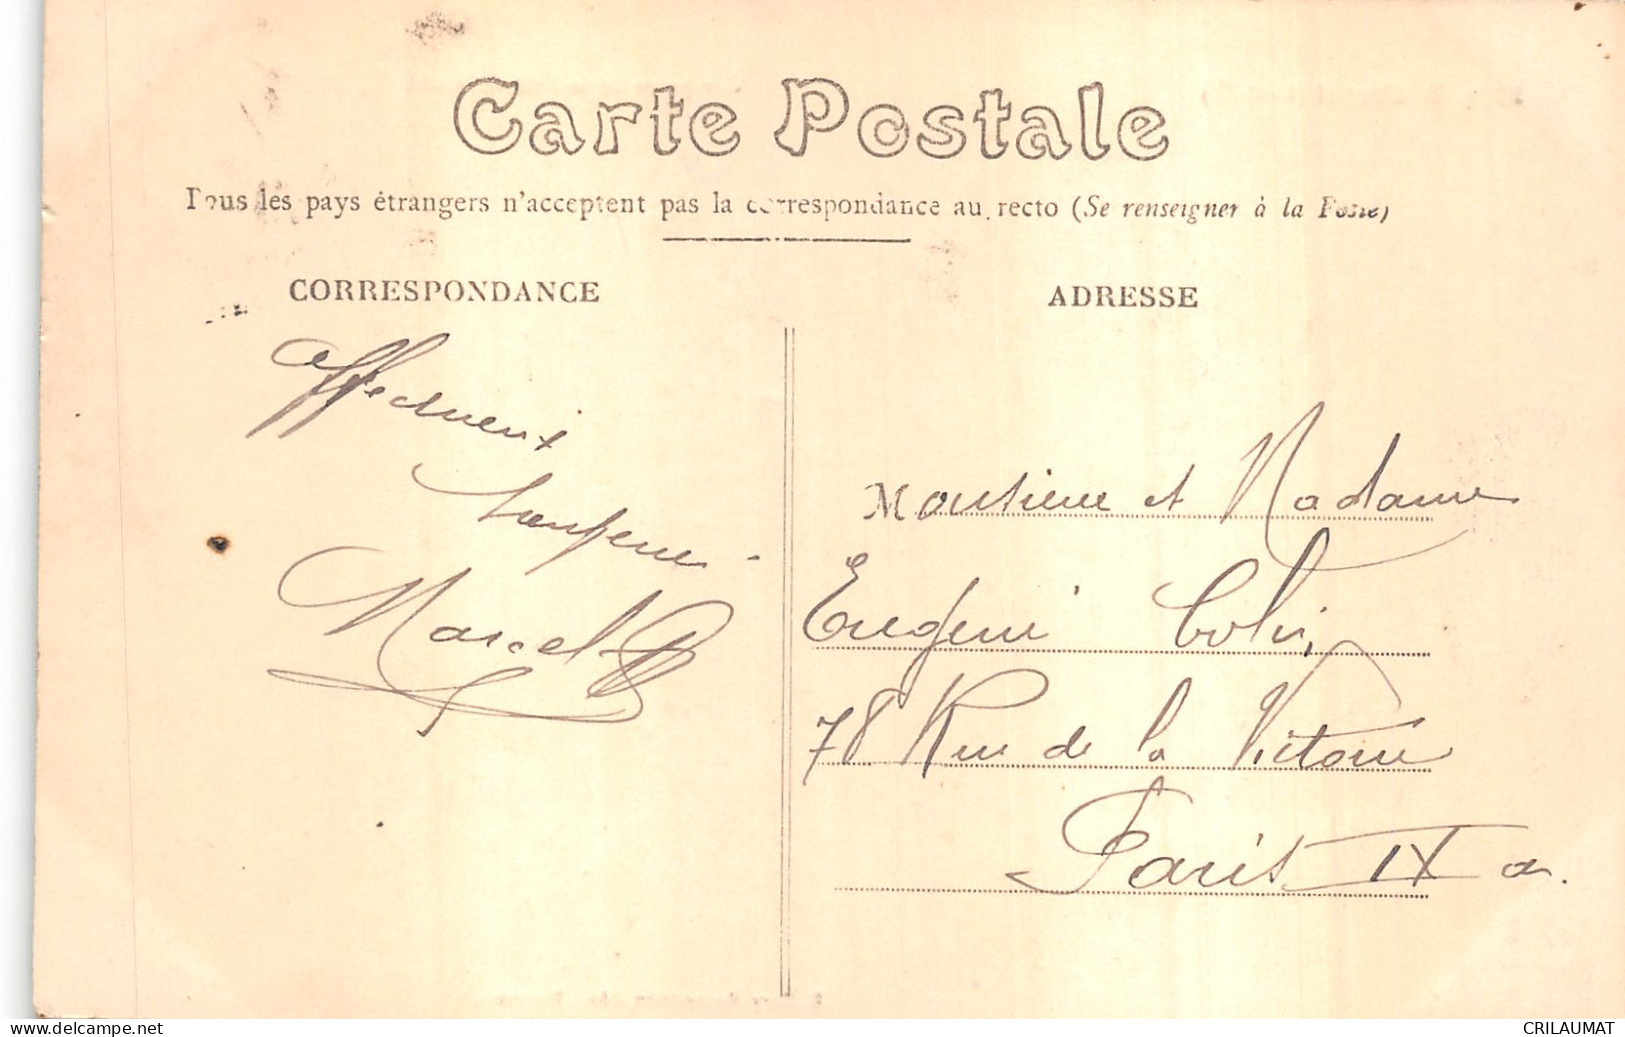 Carte Postale
Tous les pays étrangers n'acceptent pas la correspondance au recto (Se renseigner à la Poste)
CORRESPONDANCE
ADRESSE
affectueux
Marcel
Monsieur et Madame
Eugène Colin
78 Rue de la Victoire
Paris IX a.
CRILAUMAT